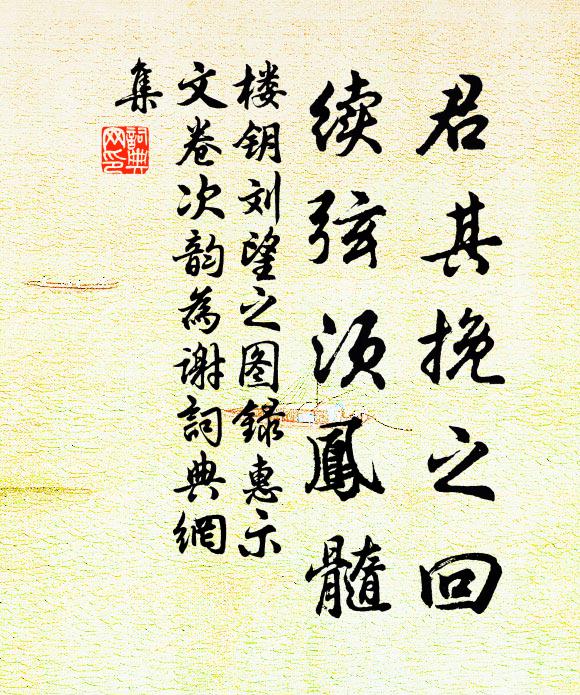 君其挽之回
续弦须凤髓
楼钥刘望之图録惠示
文卷次韵为谢詞典網
集
詞典網印